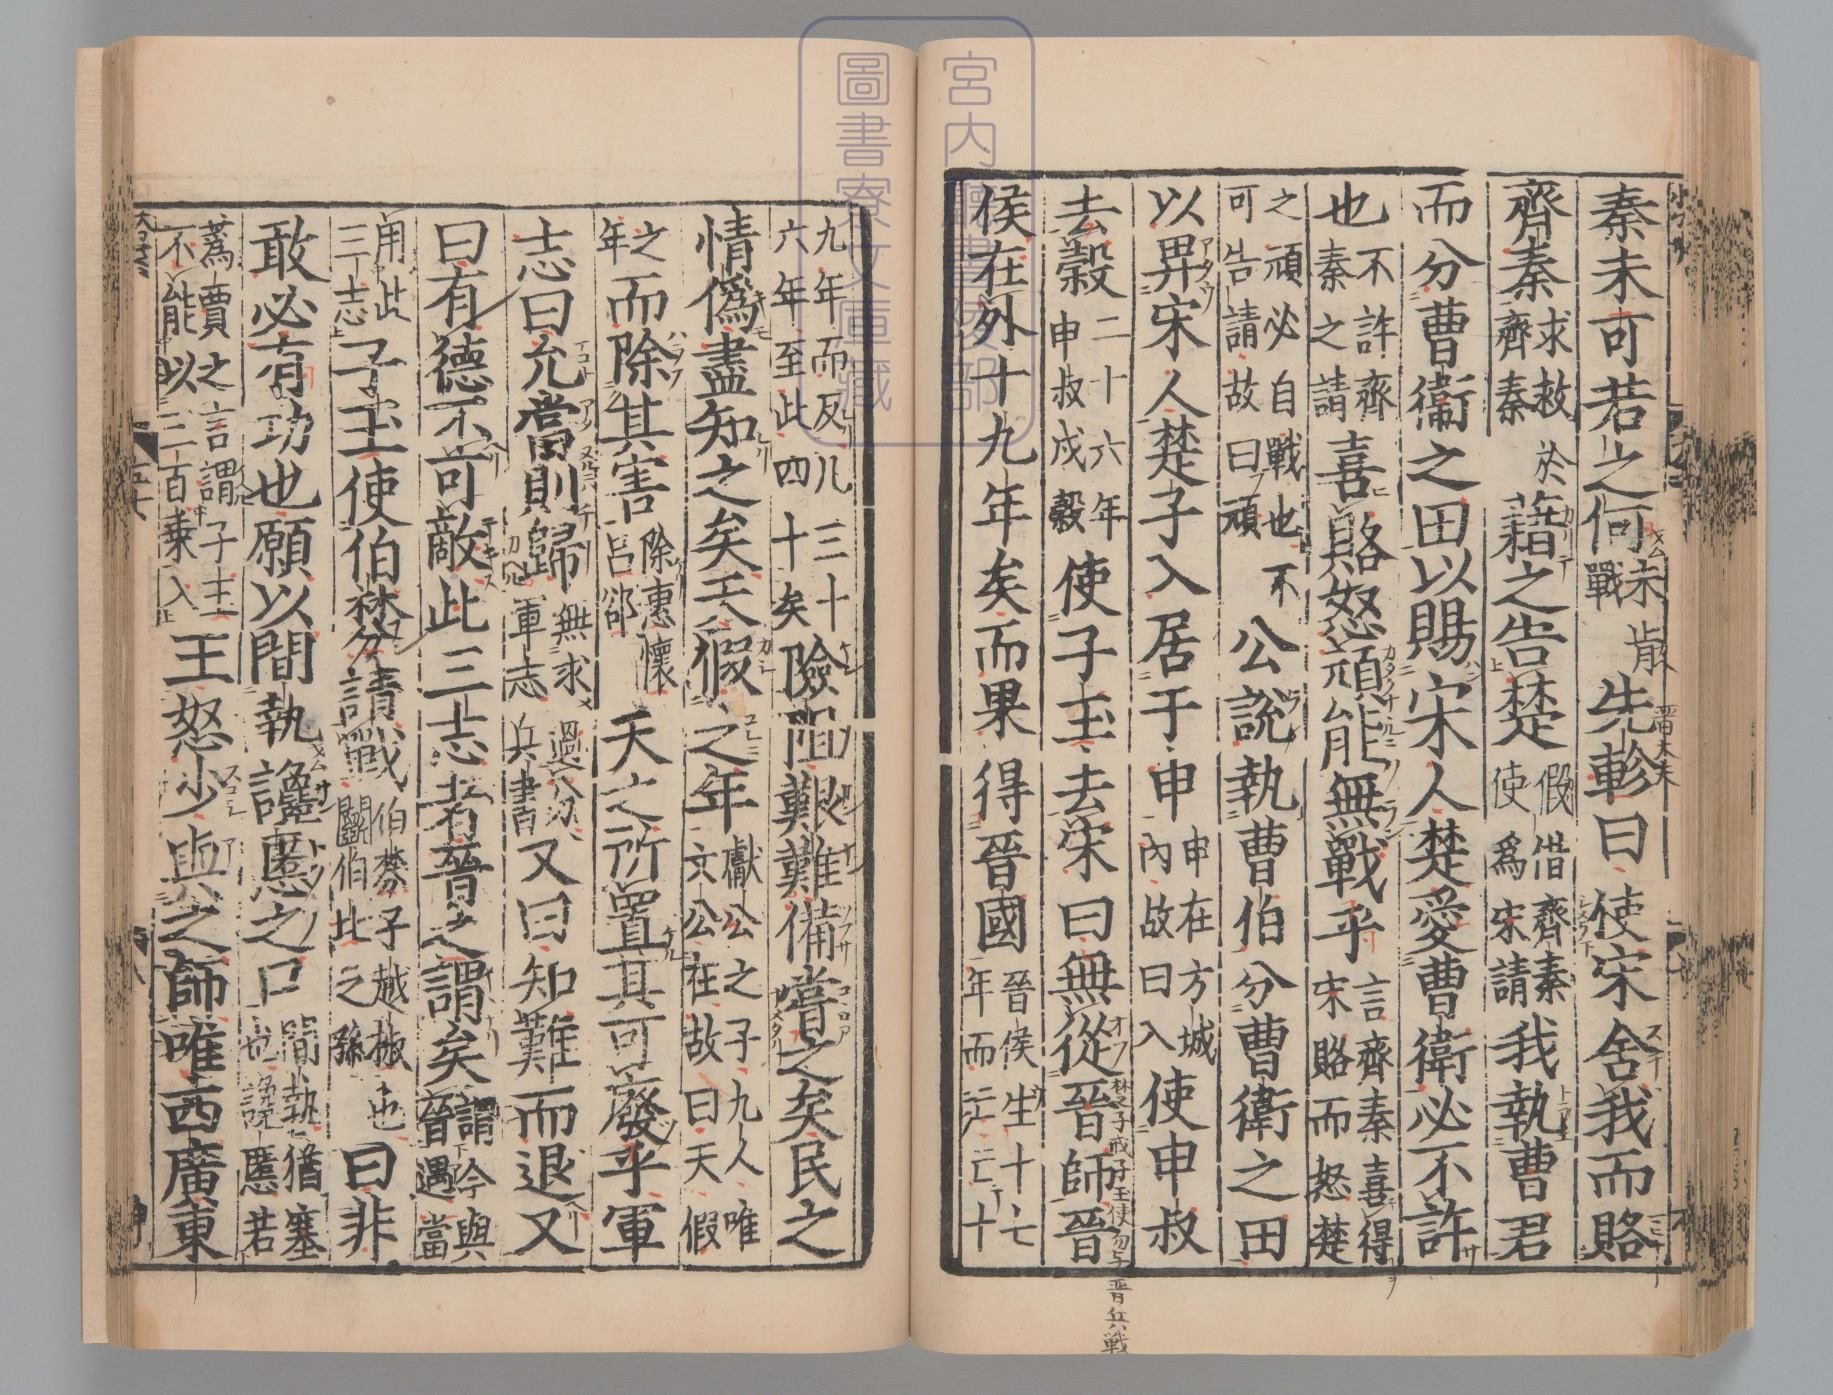 秦未可若之何未肯戰先軫曰使宋舍我而賂
齊秦求救於齊秦藉之告楚假借齊秦使爲宋請我執曹君
而分曹衞之田以賜宋人楚愛曹衛必不許
也不許齊秦之請喜賂怒頑能無戰乎言齊秦喜得宋賂而怒楚
之頑必自戰也不可告請故曰頑公說執曹伯分曹衛之田
以畀宋人楚子入居于申申在方城內故曰入使申叔
去穀二十六年申叔戍穀使子玉去宋曰無從晉師晉
侯在外十九年矣而果得晉國晉侯生十七年而亡亡十
九年而反凡三十六年至此四十矣險阻艱難備嘗之矣民之
情僞盡知之矣天假之年獻公之子九人唯文公在故曰天假
之年而除其害除惠懷呂郤天之所置其可廢乎軍
志曰允當則歸無求過分軍志兵書又曰知難而退又
曰有德不可敵此三志者晉之謂矣謂今與晉遇當
用此三志子玉使伯棼請戰伯棼子越椒也鬬伯比之孫曰非
敢必有功也願以間執讒慝之口間執猶塞也讒慝若
蒍賈之言謂子玉不能以三百乘入王怒少與之師唯西廣東
宮内廳書陵部
圖書寮文庫藏